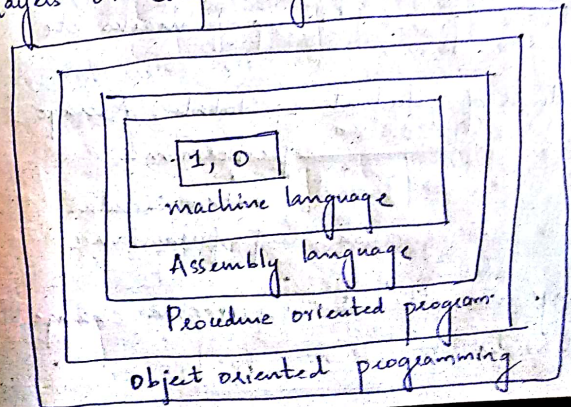 1, 0
machine language
Assembly language
Procedure oriented program
Object oriented programming